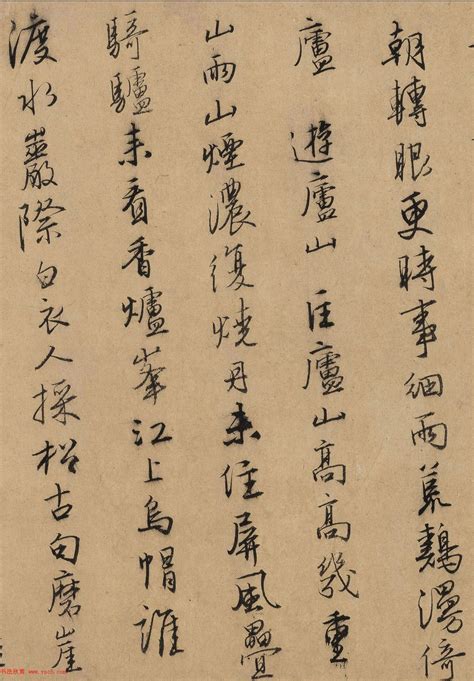 朝轉眼更時事細雨荒鷄漫倚
廬 遊廬山 住廬山高高幾重
山雨山煙濃復燒丹來住屏風疊
騎驢來看香爐峯江上烏帽誰
渡水巖際白衣人採松古句磨崖
书法欣赏 www.yac8.com